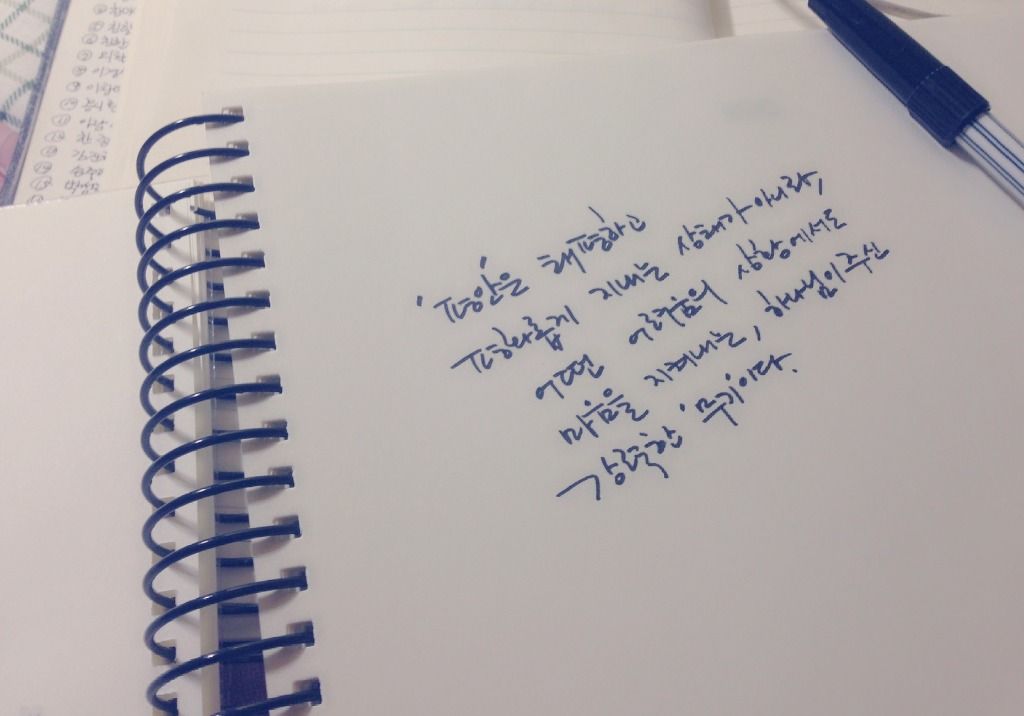 '평안'은 태평하고
평화롭게 지내는 상태가 아니라,
어떤 어려움의 상황에서도
마음을 지켜내는, 하나님이 주신
강력한 '무기'이다.